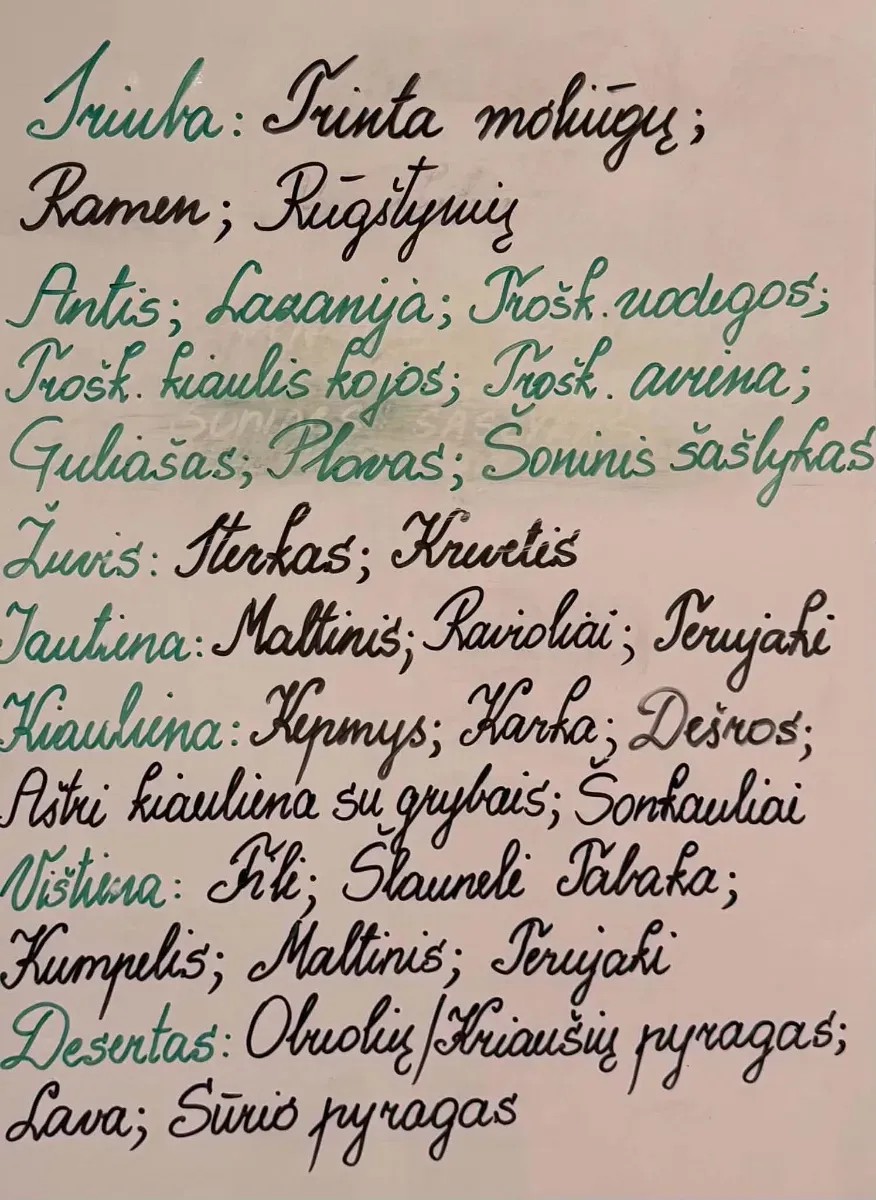 Sriuba: Trinta moliūgų;
Ramen; Rūgštynių
Antis; Lazanija; Trošk. uodegos;
Trošk. kiaulės kojos; Trošk. aviena;
Guliašas; Plovas; Šoninės šašlykas
Žuvis: Sterkas; Krevetės
Jautiena: Maltinis; Ravioliai; Terijaki
Kiauliena: Kepsnys; Karka; Dešros;
Aštri kiauliena su grybais; Šonkauliai
Vištiena: Filė; Šlaunelė Tabaka;
Kumpelis; Maltinis; Terijaki
Desertas: Obuolių/Kriaušių pyragas;
Lava; Sūrio pyragas